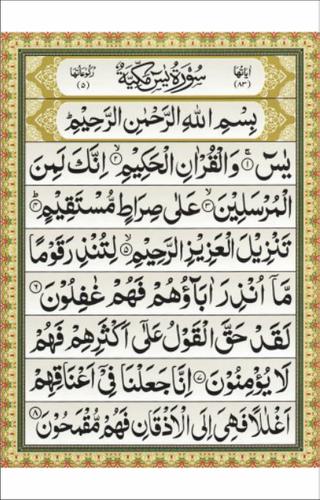 اٰیَاتُهَا (۸۳) سُوْرَةُ یٰسٓ مَكِّیَّةٌ رُكُوْعَاتُهَا (۵)
بِسْمِ اللّٰهِ الرَّحْمٰنِ الرَّحِیْمِ
یٰسٓ ۚ﴿۱﴾ وَالْقُرْاٰنِ الْحَكِیْمِ ۙ﴿۲﴾ اِنَّكَ لَمِنَ
الْمُرْسَلِیْنَ ۙ﴿۳﴾ عَلٰی صِرَاطٍ مُّسْتَقِیْمٍ ؕ﴿۴﴾
تَنْزِیْلَ الْعَزِیْزِ الرَّحِیْمِ ۙ﴿۵﴾ لِتُنْذِرَ قَوْمًا
مَّاۤ اُنْذِرَ اٰبَآؤُهُمْ فَهُمْ غٰفِلُوْنَ ﴿۶﴾
لَقَدْ حَقَّ الْقَوْلُ عَلٰۤی اَكْثَرِهِمْ فَهُمْ
لَا یُؤْمِنُوْنَ ﴿۷﴾ اِنَّا جَعَلْنَا فِیْۤ اَعْنَاقِهِمْ
اَغْلٰلًا فَهِیَ اِلَی الْاَذْقَانِ فَهُمْ مُّقْمَحُوْنَ ﴿۸﴾